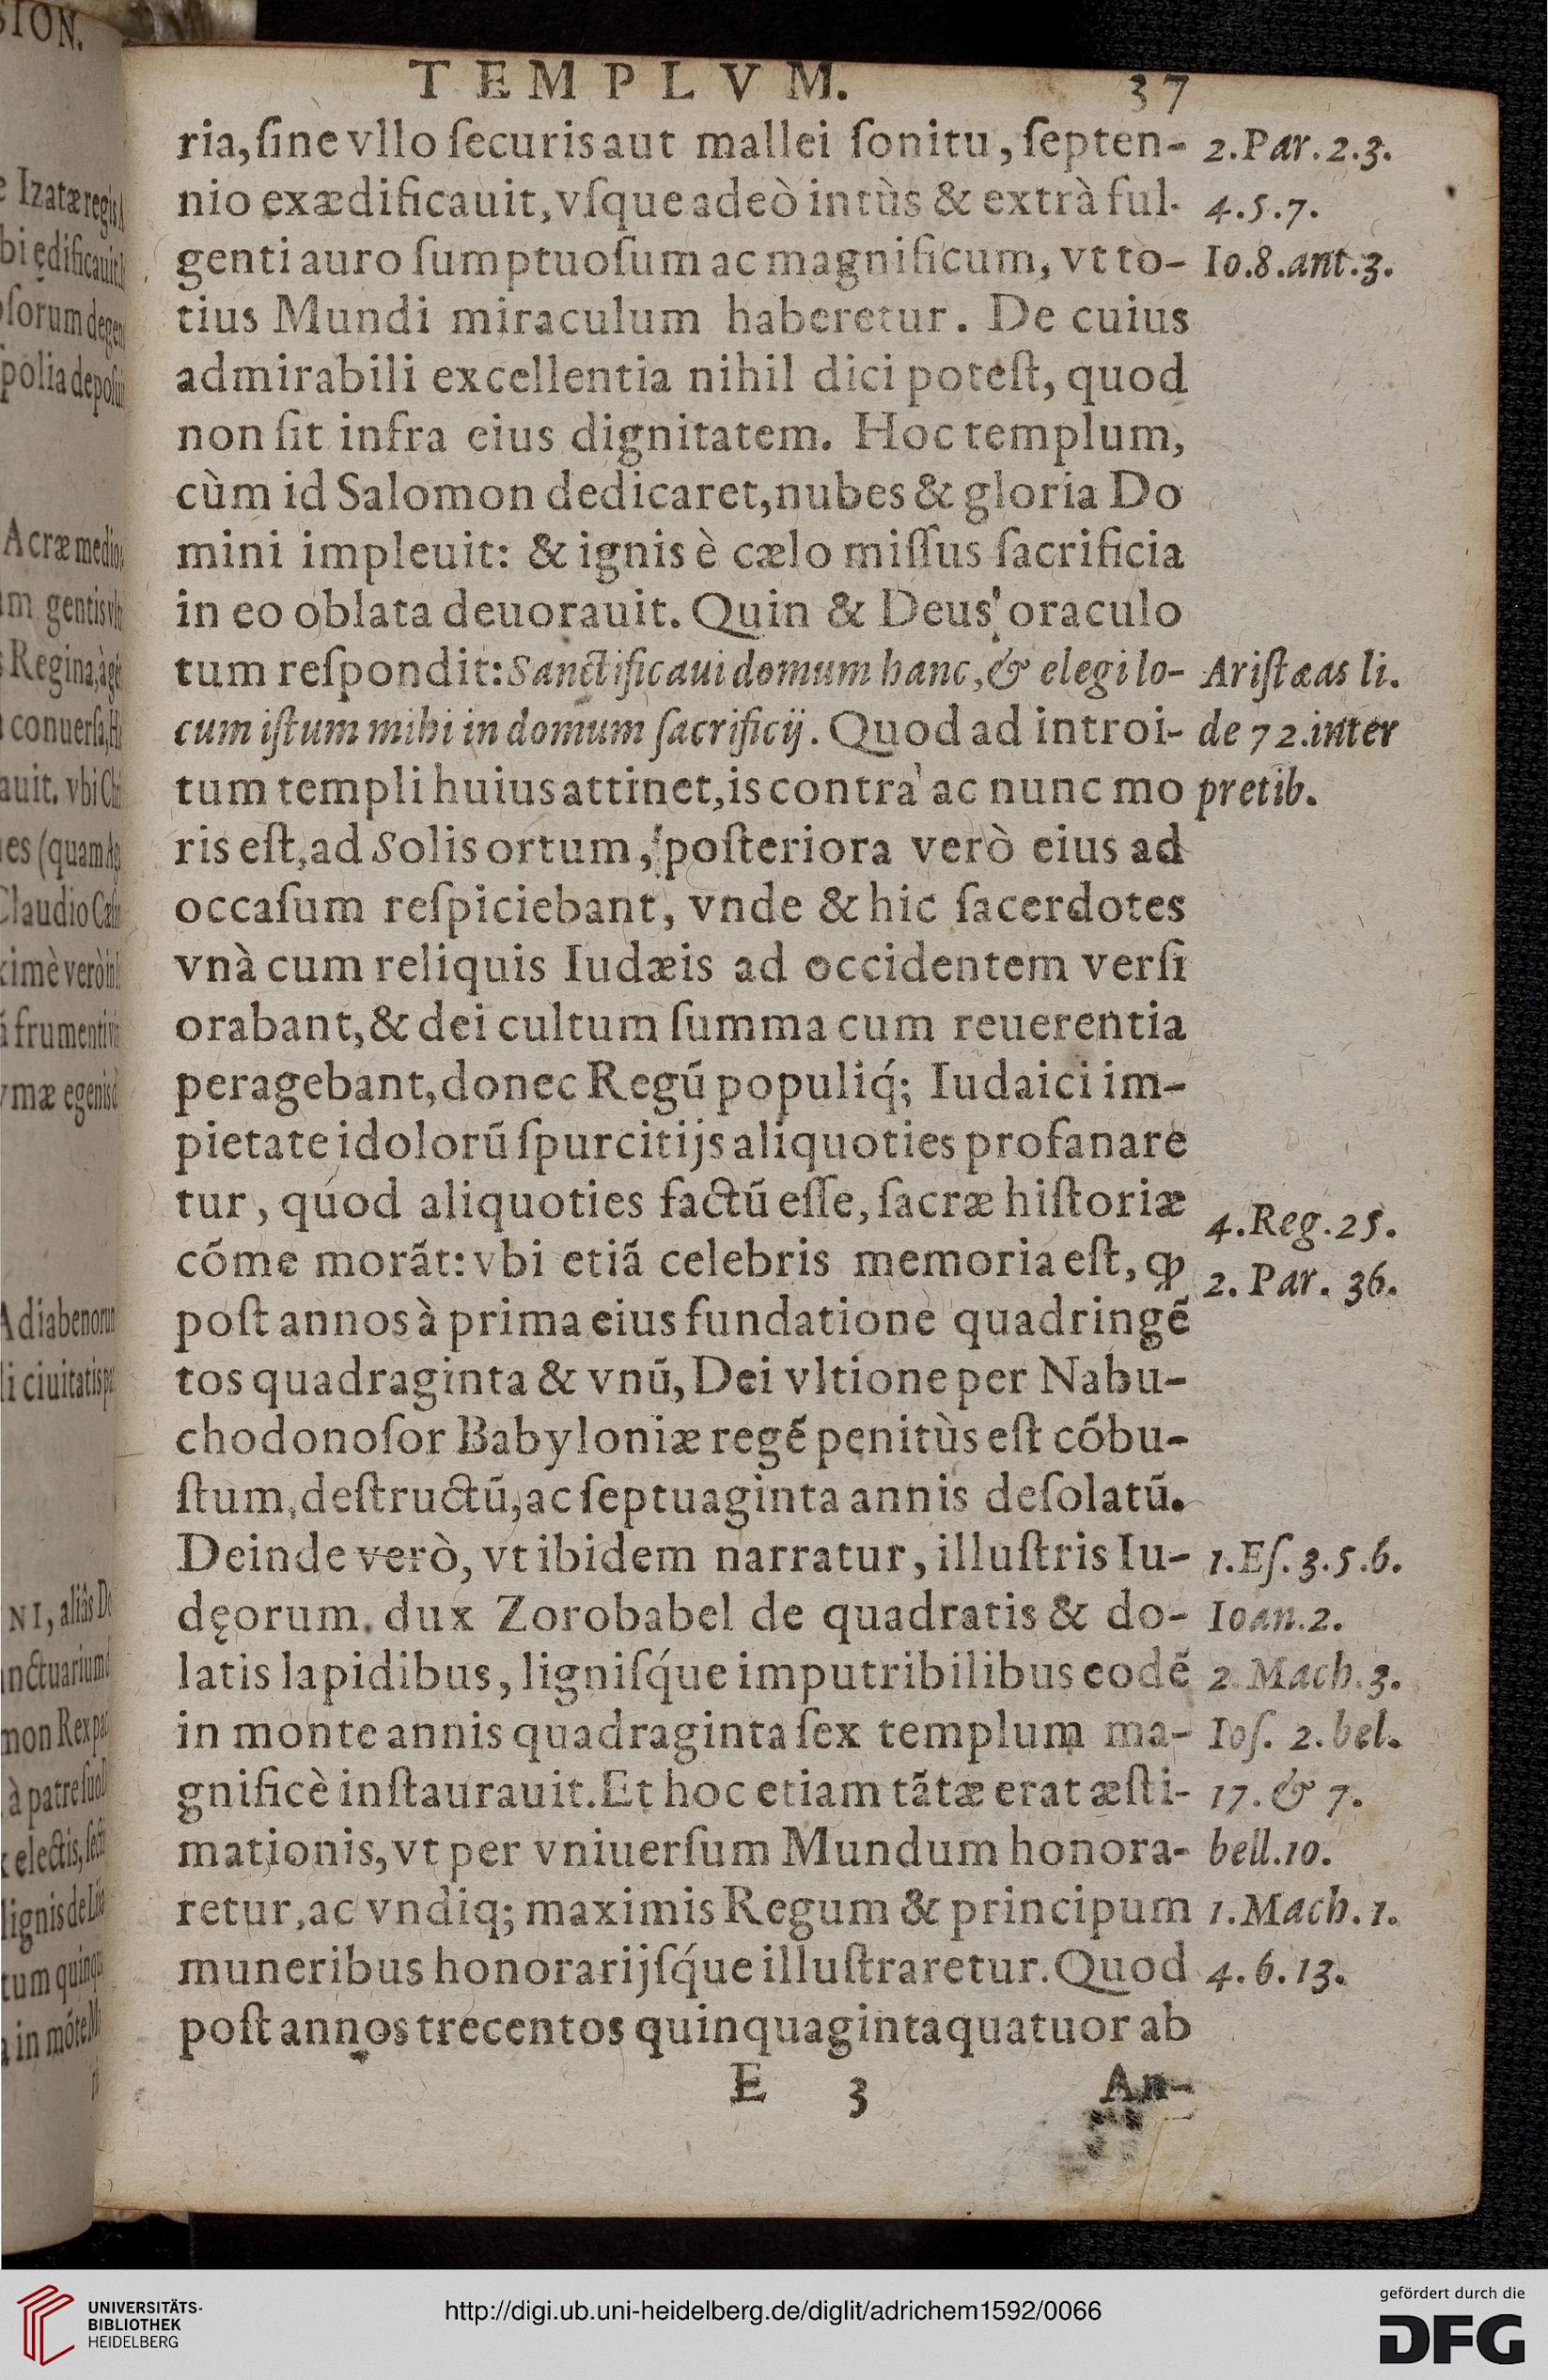 TEMPLVM. 37
ria, ſine vllo ſecuris aut mallei ſonitu, ſepten- 2.Par.2.3.
nio exædificauit, vſque adeò intùs & extrà ful- 4.5.7.
genti auro ſumptuoſum ac magnificum, vt to- Io.8.ant.3.
tius Mundi miraculum haberetur. De cuius
admirabili excellentia nihil dici poteſt, quod
non ſit infra eius dignitatem. Hoc templum,
cùm id Salomon dedicaret, nubes & gloria Do
mini impleuit: & ignis è cælo miſſus ſacrificia
in eo oblata deuorauit. Quin & Deus oraculo
tum reſpondit: Sanctificaui domum hanc, & elegi lo- Ariſtæas li.
cum iſtum mihi in domum ſacrificij. Quod ad introi- de 72.inter
tum templi huius attinet, is contrà ac nunc mo pretib.
ris eſt, ad Solis ortum, poſteriora verò eius ad
occaſum reſpiciebant, vnde & hic ſacerdotes
vnà cum reliquis Iudæis ad occidentem verſi
orabant, & dei cultum ſumma cum reuerentia
peragebant, donec Regũ populiq́; Iudaici im-
pietate idolorũ ſpurcitijs aliquoties profanare
tur, quod aliquoties factũ eſſe, ſacræ hiſtoriæ 4.Reg.25.
cõme morãt: vbi etiã celebris memoria eſt, ꝙ 2. Par. 36.
poſt annos à prima eius fundatione quadringẽ
tos quadraginta & vnũ, Dei vltione per Nabu-
chodonoſor Babyloniæ regẽ penitùs eſt cõbu-
ſtum, deſtructũ, ac ſeptuaginta annis deſolatũ.
Deinde verò, vt ibidem narratur, illuſtris Iu- 1.Eſ.3.5.6.
dęorum dux Zorobabel de quadratis & do- Ioan.2.
latis lapidibus, ligniſq́ue imputribilibus eodẽ 2.Mach.3.
in monte annis quadraginta ſex templum ma- Ioſ. 2.bel.
gnificè inſtaurauit. Et hoc etiam tãtæ erat æſti- 17. & 7.
mationis, vt per vniuerſum Mundum honora- bell.10.
retur, ac vndiq; maximis Regum & principum 1.Mach.1.
muneribus honorarijſq́ue illuſtraretur. Quod 4.6.13.
poſt annos trecentos quinquagintaquatuor ab
E 3 An-
UNIVERSITÄTS-
BIBLIOTHEK
HEIDELBERG
http://digi.ub.uni-heidelberg.de/diglit/adrichem1592/0066
gefördert durch die
DFG